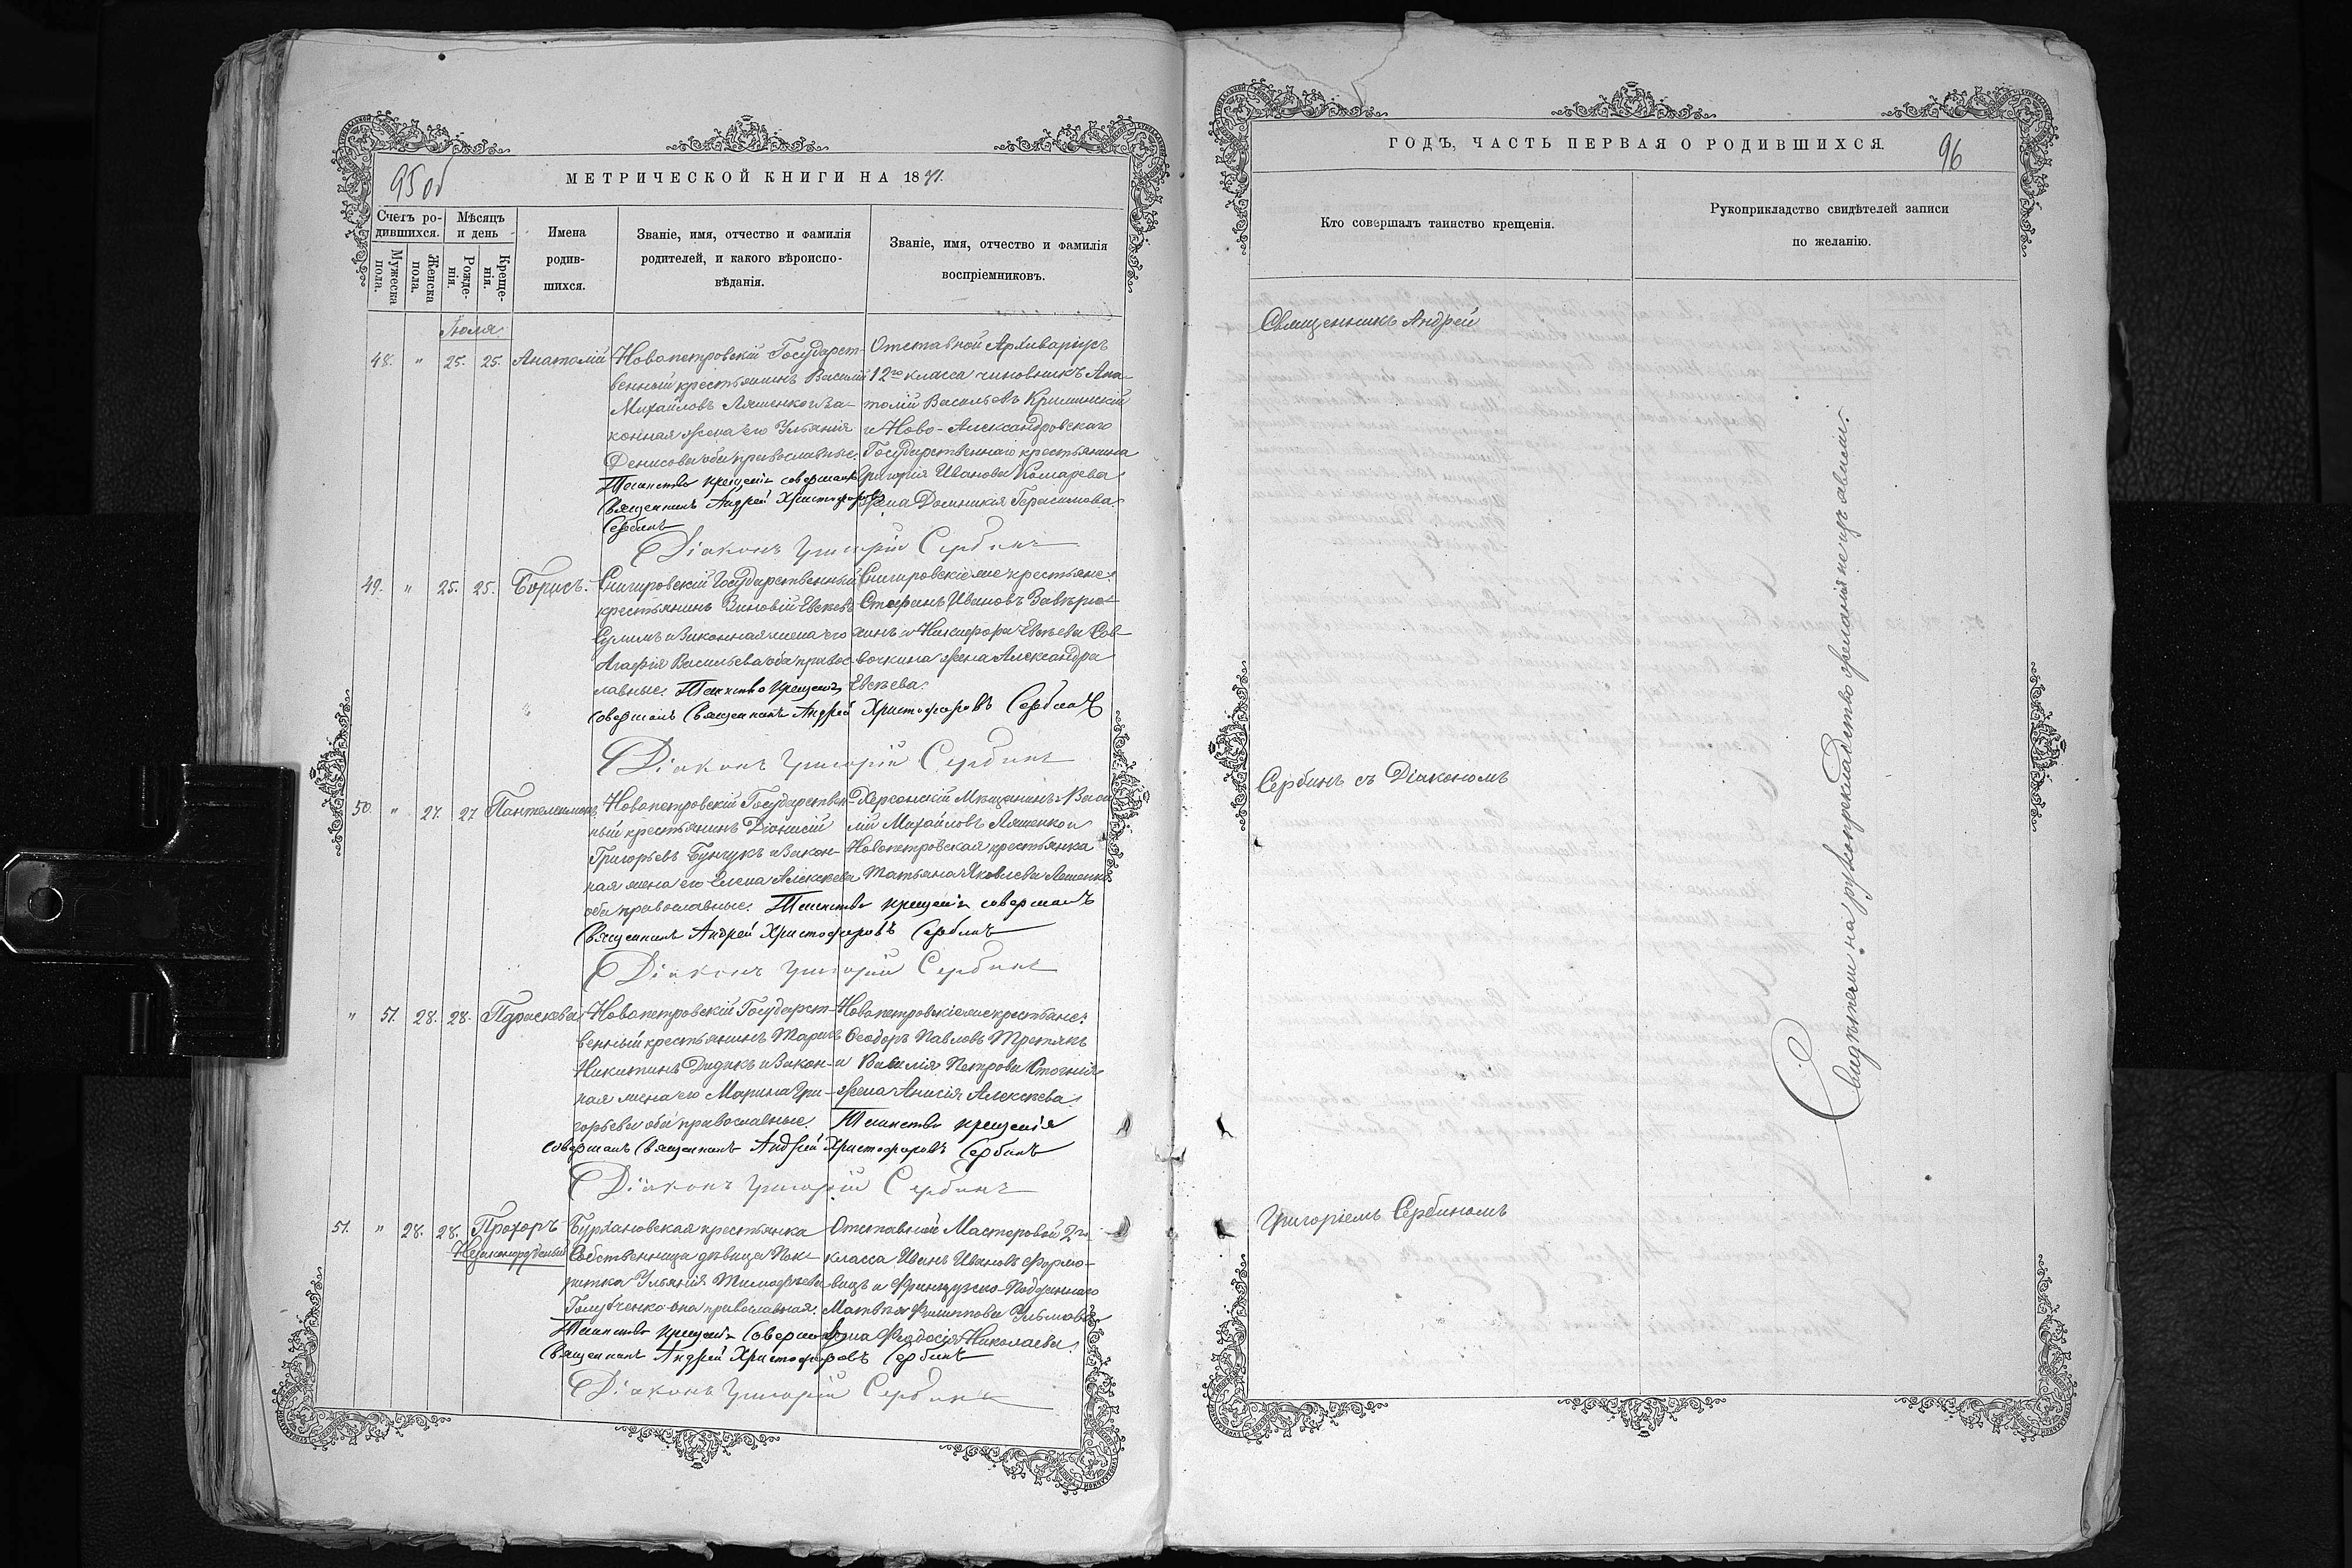 95 об
МЕТРИЧЕСКОЙ КНИГИ НА 1871.
Счетъ ро-
дившихся.
Мѣсяцъ
и день
Мужеска
пола.
Женска
пола.
Рожде-
нія.
Креще-
нія.
Имена
родив-
шихся.
Званіе, имя, отчество и фамилія
родителей, и какого вѣроиспо-
вѣданія.
Званіе, имя, отчество и фамилія
воспріемниковъ.
Іюля
48. " 25. 25. Анатолій
Новопетровскій Государст-
венный крестьянинъ Василій
Михайловъ Ляшенко и за-
конная жена его Ульянія
Денисова оба православные.
Таинство крещенія совершалъ
Священникъ Андрей Христофоровъ
Сербинъ
Отставной Архиваріусъ
12го класса чиновникъ Ана-
толій Васильевъ Криминскій
и Ново-Александровскаго
Государственнаго крестьянина
Григорія Иванова Комарева
жена Домникія Герасимова.
Діаконъ Григорій Сербинъ
49. " 25. 25. Борисъ.
Снигировскій Государственный
крестьянинъ Зиновій
и Законная жена его
Агафія Васильева оба правос-
лавные. Таинство крещенія
совершалъ Священникъ Андрей Христофоровъ Сербинъ
Снигировскіе же крестьяне:
Стефанъ Ивановъ
и Никифора Евсѣева Сов-
вочкина жена Александра
Евсѣева.
Діаконъ Григорій Сербинъ
50. " 27. 27. Пантелеимонъ.
Новопетровскій Государствен-
ный крестьянинъ Діонисій
Григорьевъ Бунчукъ и Закон-
ная жена его Елена Алексѣева
оба православные. Таинство крещенія совершалъ
Священникъ Андрей Христофоровъ Сербинъ
Херсонскій Мѣщанинъ Васи
лій Михайловъ Ляшенко и
Новопетровская крестьянка
Татьяна Яковлева Ляшенко
Діаконъ Григорій Сербинъ
" 51. 28. 28. Параскева
Новопетровскій Государст-
венный крестьянинъ Тарасъ
Никитинъ Дидыкъ и Закон-
ная жена его Марина Гри-
горьева оба православные. Таинство крещенія
совершалъ Священникъ Андрей Христофоровъ Сербинъ
Новопетровскіе же крестьяне:
Ѳеодоръ Павловъ Третякъ
и Василія Петрова
жена Анисія Алексѣева.
Діаконъ Григорій Сербинъ
51. " 28. 28. Прохоръ
Незаконорожденный
Бурхановская крестьянка
Собственница дѣвица
Ульянія Тимофѣева
Голубченко она православная.
Таинство крещенія Совершалъ
Священникъ Андрей Христофоровъ Сербинъ
Отставной Мастеровой 2го
класса Иванъ Ивановъ
и Французско-Подданнаго
Матвѣя Филиппова
жена Ѳеодосія Николаева.
Діаконъ Григорій Сербинъ
ГОДЪ, ЧАСТЬ ПЕРВАЯ О РОДИВШИХСЯ.
96
Кто совершалъ таинство крещенія.
Рукоприкладство свидѣтелей записи
по желанію.
Священникъ Андрей
Сербинъ съ Діакономъ
Григоріемъ Сербиномъ
Свидѣтели на рукоприкладство желанія не изъявили.